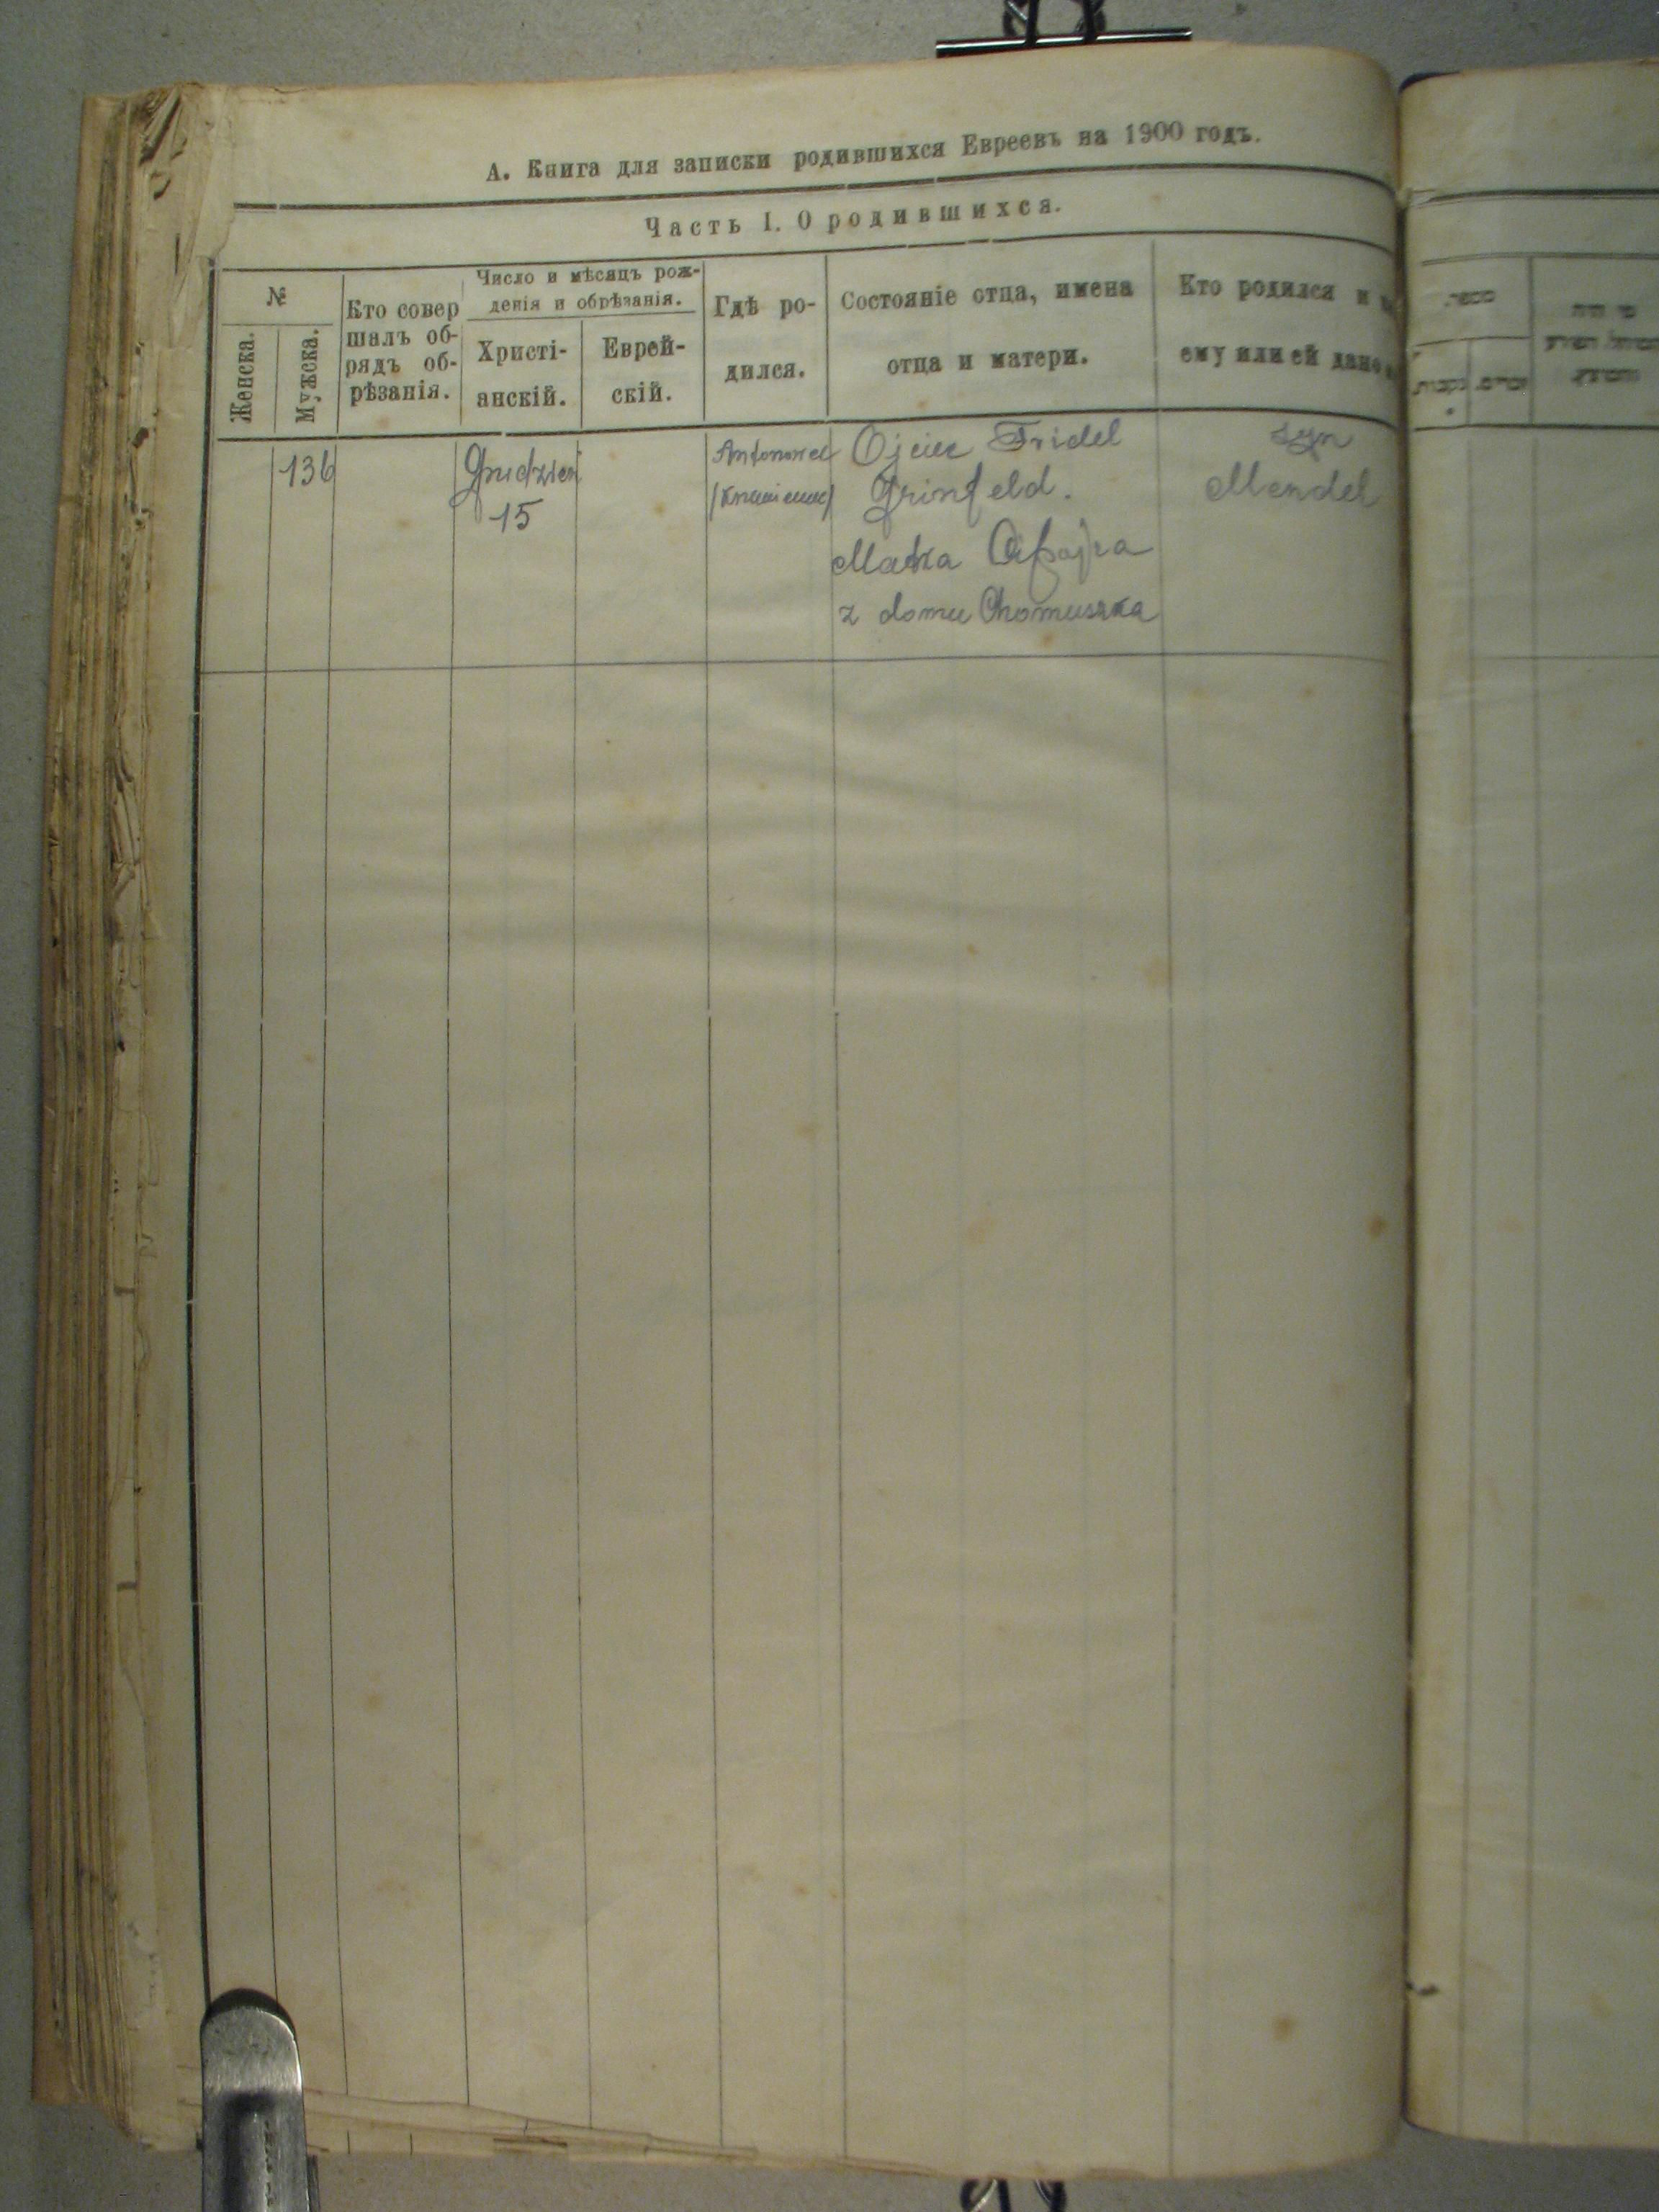 А. Книга для записки родившихся Евреевъ на 1900 годъ.
Часть I. О родившихся.
№
Женска.
Мужска.
Кто совер
шалъ об-
рядъ об-
рѣзанія.
Число и мѣсяцъ рож-
денія и обрѣзанія.
Христі-
анскій.
Еврей-
скій.
Гдѣ ро-
дился.
Состояніе отца, имена
отца и матери.
Кто родился и
ему или ей дано
136
Grudzień
15
Ojciec Fridel
Grinfeld.
Matka
z domu Chomuszka
syn
Mendel